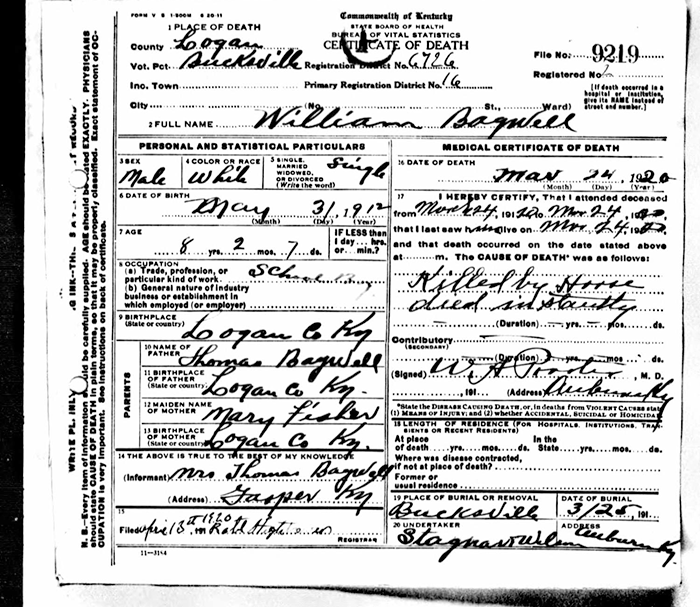 FORM V S 1-500M 6-20-11
Commonwealth of Kentucky
STATE BOARD OF HEALTH
BUREAU OF VITAL STATISTICS
CERTIFICATE OF DEATH
1 PLACE OF DEATH
County Logan
Vot. Pct. Bucksville Registration District No. 6726
File No. 9219
Registered No.
Inc. Town Primary Registration District No. 16
[If death occurred in a hospital or institution, give its NAME instead of street and number.]
City (No. St., Ward)
2 FULL NAME William Bagwell
PERSONAL AND STATISTICAL PARTICULARS
3 SEX Male
4 COLOR OR RACE White
5 SINGLE, MARRIED WIDOWED, OR DIVORCED (Write the word) Single
6 DATE OF BIRTH
May 31, 1912
(Month) (Day) (Year)
7 AGE
8 yrs. 2 mos. 7 ds.
IF LESS than 1 day... hrs. or min.?
8 OCCUPATION
(a) Trade, profession, or particular kind of work School
(b) General nature of industry business or establishment in which employed (or employer)
9 BIRTHPLACE
(State or country) Logan Co Ky
PARENTS
10 NAME OF FATHER Thomas Bagwell
11 BIRTHPLACE OF FATHER (State or country) Logan Co Ky.
12 MAIDEN NAME OF MOTHER Mary Fisher
13 BIRTHPLACE OF MOTHER (State or country) Logan Co Ky.
14 THE ABOVE IS TRUE TO THE BEST OF MY KNOWLEDGE
(Informant) Mrs Thomas Bagwell
(Address) Jasper Ky
15
Filed April 13th 191
REGISTRAR
11-3184
MEDICAL CERTIFICATE OF DEATH
16 DATE OF DEATH
Mar 24, 1920
(Month) (Day) (Year)
17 I HEREBY CERTIFY, That I attended deceased
from Mar 24, 1920 to Mar 24, 1920
that I last saw him alive on Mar 24 1920
and that death occurred on the date stated above
at m. The CAUSE OF DEATH* was as follows:
Killed by Horse
died instantly
(Duration) yrs. mos. ds.
Contributory
(SECONDARY)
(Duration) yrs. mos. ds.
(Signed) W. A. , M. D.
, 191 (Address) Auburn Ky
*State the DISEASE CAUSING DEATH, or, in deaths from VIOLENT CAUSES state (1) MEANS OF INJURY; and (2) whether ACCIDENTAL, SUICIDAL or HOMICIDAL
18 LENGTH OF RESIDENCE (FOR HOSPITALS, INSTITUTIONS, TRANSIENTS OR RECENT RESIDENTS)
At place of death yrs. mos. ds. In the State yrs. mos. ds.
Where was disease contracted, if not at place of death?
Former or usual residence
19 PLACE OF BURIAL OR REMOVAL
Bucksville
DATE OF BURIAL
3/25, 191
20 UNDERTAKER
ADDRESS
Auburn Ky.
N. B.—Every item of information should be carefully supplied. AGE should be stated EXACTLY. PHYSICIANS
should state CAUSE OF DEATH in plain terms, so that it may be properly classified. Exact statement of OCCUPATION is very important. See instructions on back of certificate.